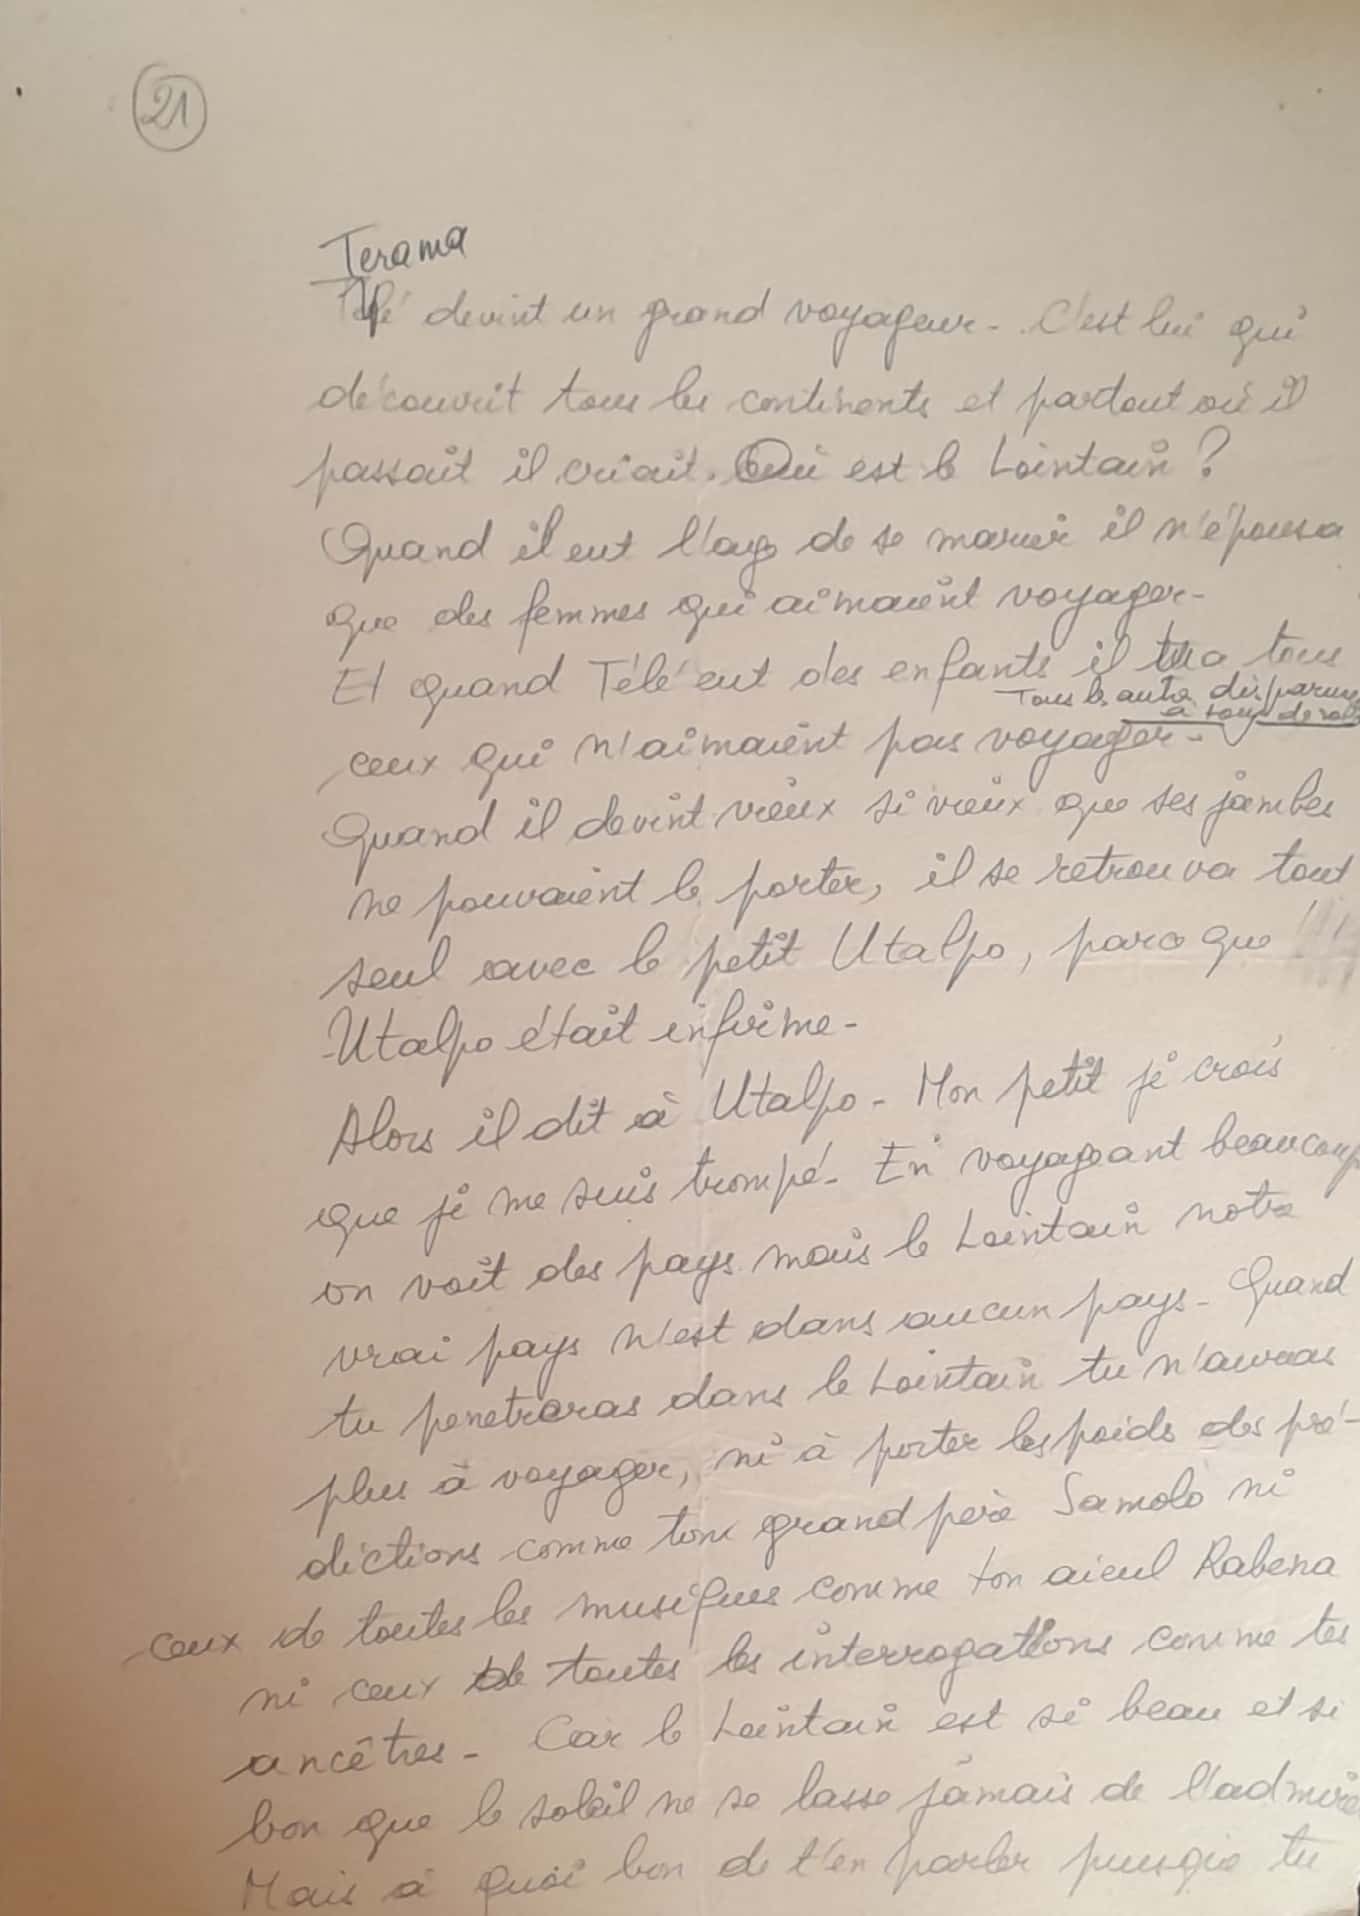 21
Terama
Télé devint un grand voyageur -. C'est lui qui
découvrit tous les continents et partout où il
passait il criait. Où est le Lointain ?
Quand il eut l'age de se marier il n'épousa
que des femmes qui aimaient voyager -
Et quand Télé eut des enfants il tua tous
Tous les autres disparurent
à tour de rôle
ceux qui n'aimaient pas voyager -
Quand il devint vieux si vieux que ses jambes
ne pouvaient le porter, il se retrouva tout
seul avec le petit Utalpo, parce que
Utalpo était infirme -
Alors il dit à Utalpo - Mon petit je crois
que je me suis trompé - En voyageant beaucoup
on voit des pays mais le Lointain notre
vrai pays n'est dans aucun pays - Quand
tu penetreras dans le Lointain tu n'auras
plus à voyager, ni à porter les poids des pré-
dictions comme ton grand père Samolo ni
ceux de toutes les musiques comme ton aieul Rabena
ni ceux de toutes les interrogations comme tes
ancêtres - Car le Lointain est si beau et si
bon que le soleil ne se lasse jamais de l'admirer
Mais à quoi bon de t'en parler puisque tu